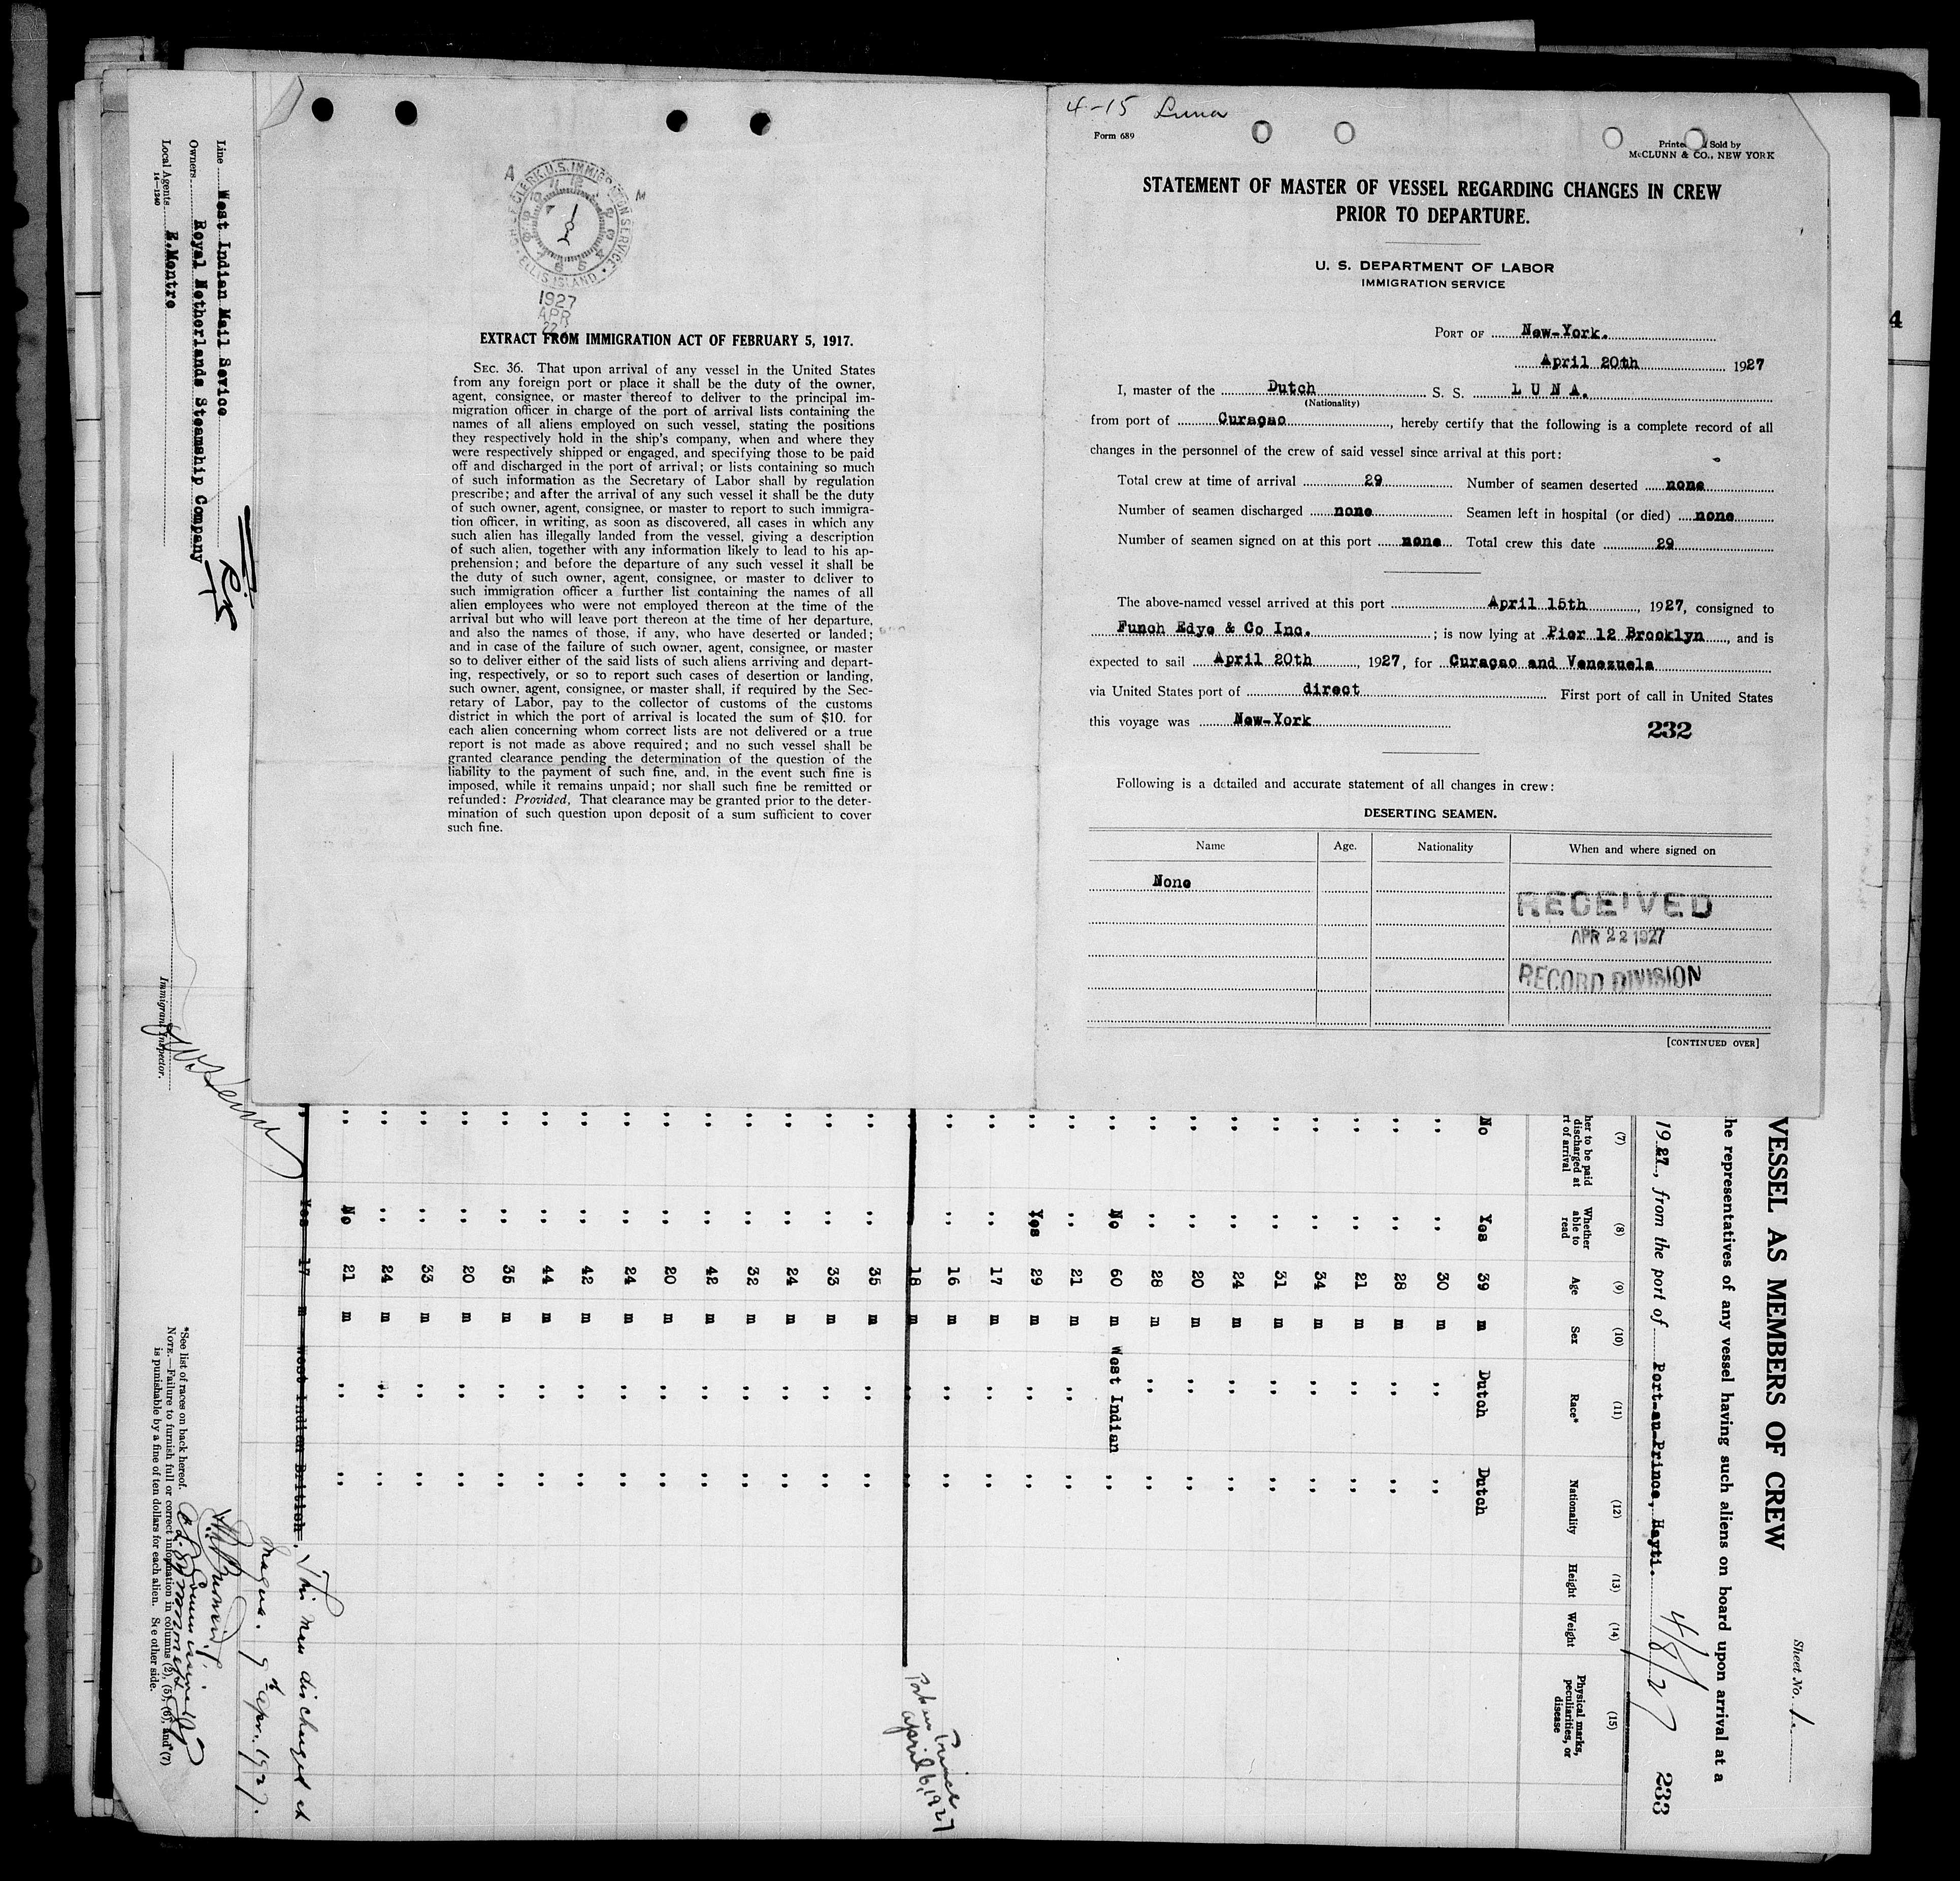 4-15 Luna
Form 689
Sold by
McCLUNN & CO., NEW YORK
STATEMENT OF MASTER OF VESSEL REGARDING CHANGES IN CREW
PRIOR TO DEPARTURE.
U. S. DEPARTMENT OF LABOR
IMMIGRATION SERVICE
PORT OF New-York.
April 20th 1927
I, master of the Dutch S. S. L U N A.
(Nationality)
from port of Curaçao, hereby certify that the following is a complete record of all
changes in the personnel of the crew of said vessel since arrival at this port:
Total crew at time of arrival 29 Number of seamen deserted none
Number of seamen discharged none Seamen left in hospital (or died) none
Number of seamen signed on at this port none Total crew this date 29
The above-named vessel arrived at this port April 15th, 1927, consigned to
Funch Edye & Co Inc. ; is now lying at Pier 12 Brooklyn, and is
expected to sail April 20th, 1927, for Curaçao and Venezuela
via United States port of direct First port of call in United States
this voyage was New-York
232
Following is a detailed and accurate statement of all changes in crew:
DESERTING SEAMEN.
Name Age. Nationality When and where signed on
None
RECEIVED
APR 22 1927
RECORD DIVISION
[CONTINUED OVER]
A M
CLERK U.S. IMMIGRATION SERVICE
ELLIS ISLAND
1927
APR
22
EXTRACT FROM IMMIGRATION ACT OF FEBRUARY 5, 1917.
SEC. 36. That upon arrival of any vessel in the United States
from any foreign port or place it shall be the duty of the owner,
agent, consignee, or master thereof to deliver to the principal im-
migration officer in charge of the port of arrival lists containing the
names of all aliens employed on such vessel, stating the positions
they respectively hold in the ship's company, when and where they
were respectively shipped or engaged, and specifying those to be paid
off and discharged in the port of arrival; or lists containing so much
of such information as the Secretary of Labor shall by regulation
prescribe; and after the arrival of any such vessel it shall be the duty
of such owner, agent, consignee, or master to report to such immigra-
tion officer, in writing, as soon as discovered, all cases in which any
such alien has illegally landed from the vessel, giving a description
of such alien, together with any information likely to lead to his ap-
prehension; and before the departure of any such vessel it shall be
the duty of such owner, agent, consignee, or master to deliver to
such immigration officer a further list containing the names of all
alien employees who were not employed thereon at the time of the
arrival but who will leave port thereon at the time of her departure,
and also the names of those, if any, who have deserted or landed;
and in case of the failure of such owner, agent, consignee, or master
so to deliver either of the said lists of such aliens arriving and depart-
ing, respectively, or so to report such cases of desertion or landing,
such owner, agent, consignee, or master shall, if required by the Sec-
retary of Labor, pay to the collector of customs of the customs
district in which the port of arrival is located the sum of $10. for
each alien concerning whom correct lists are not delivered or a true
report is not made as above required; and no such vessel shall be
granted clearance pending the determination of the question of the
liability to the payment of such fine, and, in the event such fine is
imposed, while it remains unpaid; nor shall such fine be remitted or
refunded: Provided, That clearance may be granted prior to the deter-
mination of such question upon deposit of a sum sufficient to cover
such fine.
4
VESSEL AS MEMBERS OF CREW
Sheet No. 1
he representatives of any vessel having such aliens on board upon arrival at a
1927, from the port of Port-au-Prince, Hayti. 4/8/27 233
(7) (8) (9) (10) (11) (12) (13) (14) (15)
her to be paid
discharged at
rt of arrival
Whether
able to
read
Age
Sex
Race*
Nationality
Height
Weight
Physical marks,
peculiarities, or
disease
No Yes 39 m Dutch Dutch
" " 30 m " "
" " 28 m " "
" " 21 m " "
" " 34 m " "
" " 31 m " "
" " 24 m " "
" " 20 m " "
" " 28 m " "
" No 60 m West Indian "
" " 21 m " "
" Yes 29 m " "
" " 17 m " "
" " 16 m " "
18 m " " Port au Prince
april 6, 1927
" " 35 m " "
" " 33 m " "
" " 24 m " "
" " 32 m " "
" " 42 m " "
" " 20 m " "
" " 24 m " "
" " 42 m " "
" " 44 m " "
" " 35 m " "
" " 20 m " "
" " 33 m " "
" " 24 m " "
" No 21 m " "
" Yes 17 m West Indian British. This man discharged at
apr. 1927.
Line West Indian Mail Sevice
Owners Royal Netherlands Steamship Company
Local Agents E.Montre
14—1240
Immigrant Inspector.
*See list of races on back hereof.
NOTE.—Failure to furnish full or correct information in columns (2), (5), (6), and (7)
is punishable by a fine of ten dollars for each alien. See other side.